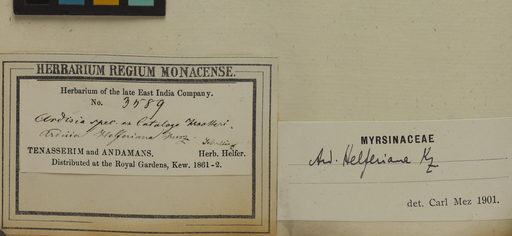 HERBARIUM REGIUM MONACENSE.
Herbarium of the late East India Company.
No. 3589
Ardisia spec. ex Catalogo
Ardisia Helferiana Kurz
TENASSERIM and ANDAMANS. Herb. Helfer.
Distributed at the Royal Gardens, Kew. 1861-2.
MYRSINACEAE
Ard. Helferiana Kz
det. Carl Mez 1901.